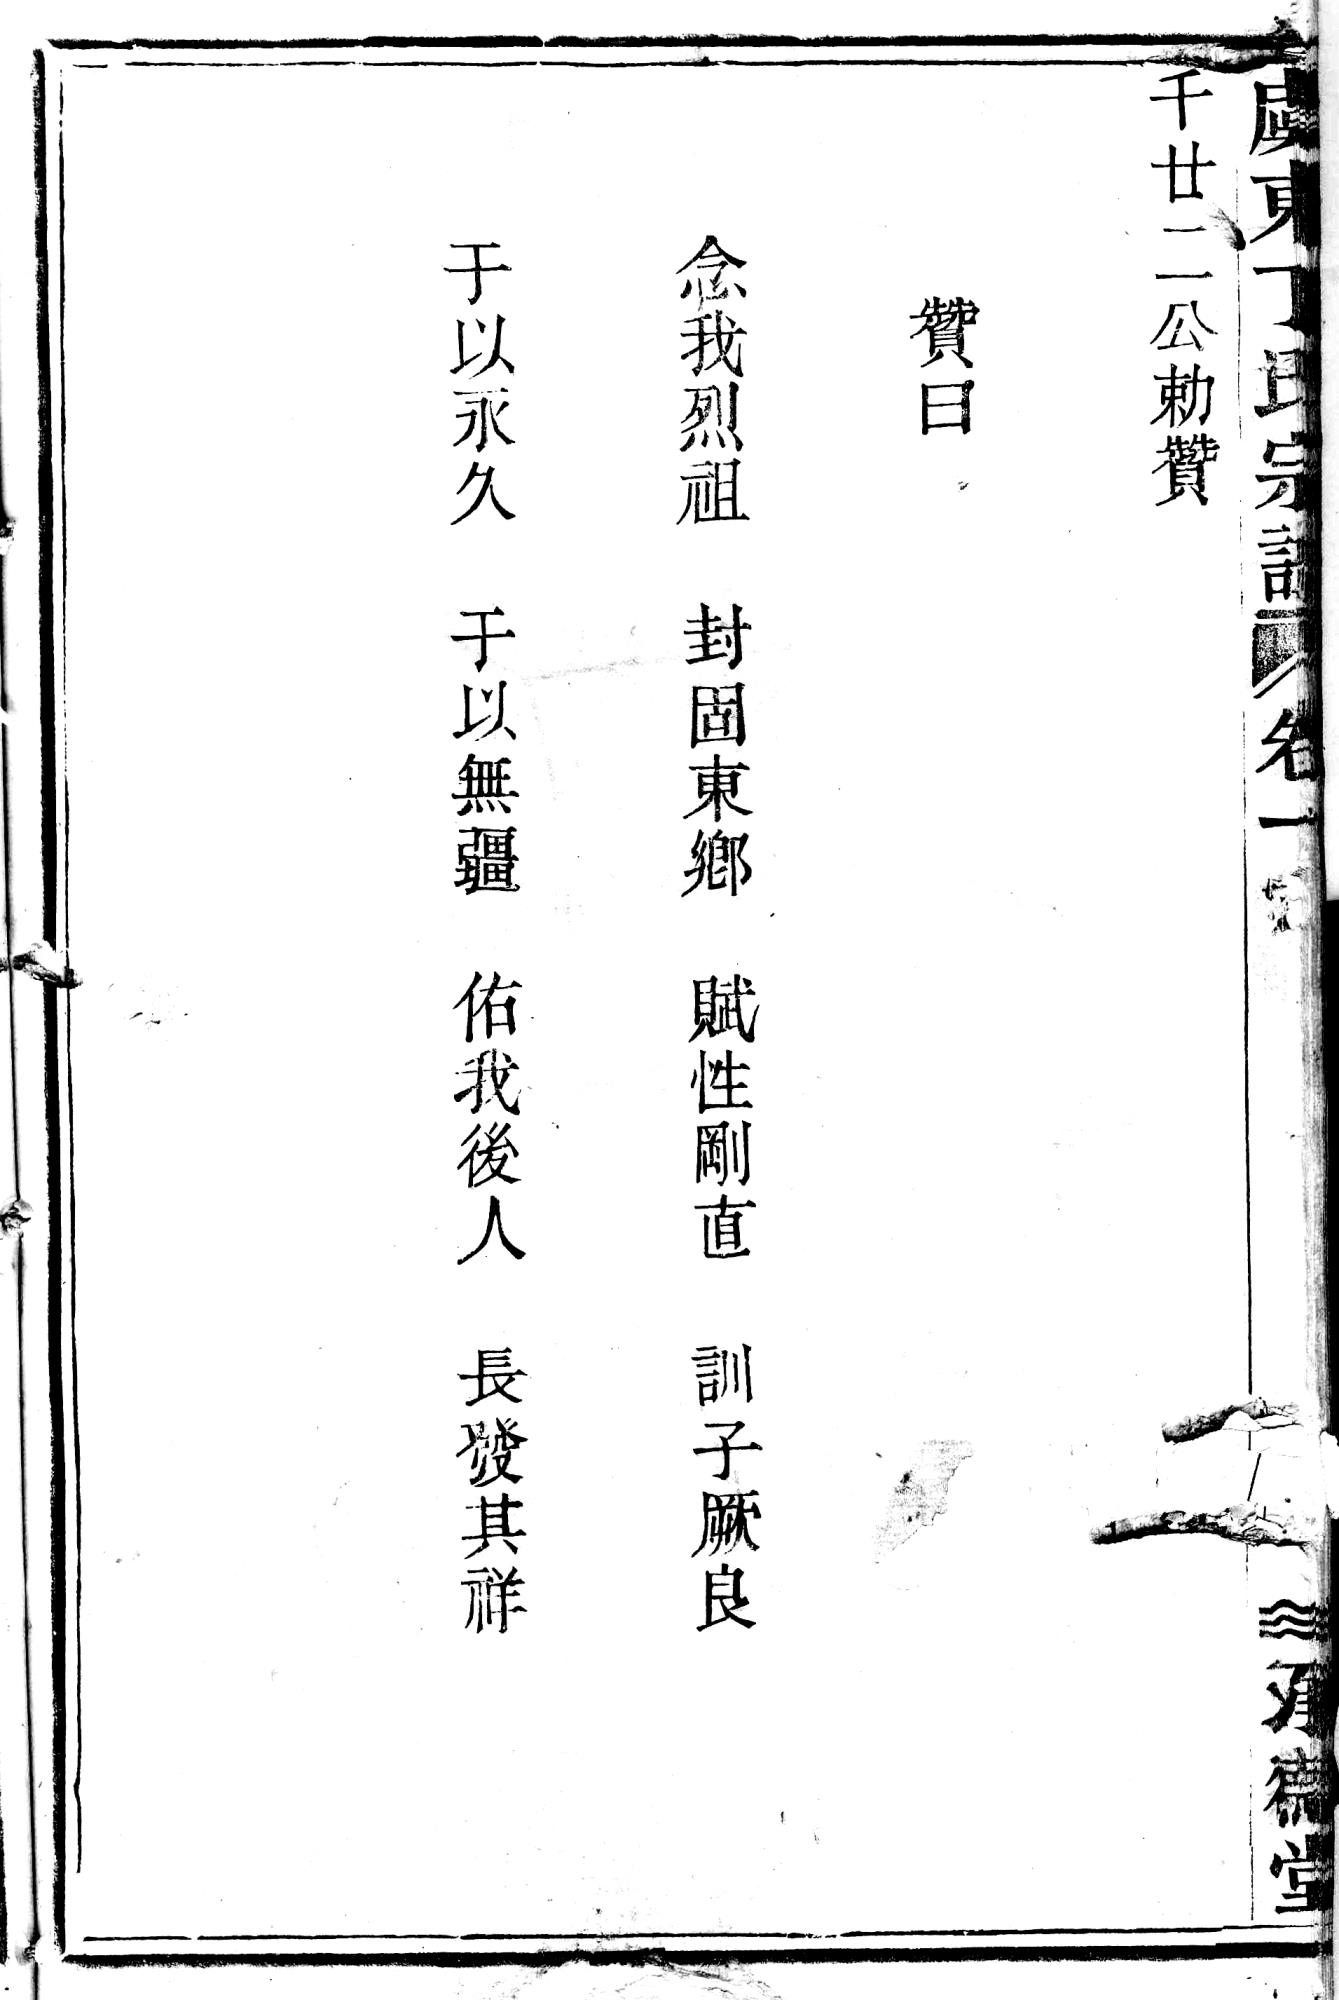 虞東丁氏宗譜 卷一 承德堂
千廿二公勅贊
贊曰
念我烈祖 封固東鄉 賦性剛直 訓子厥良
于以永久 于以無疆 佑我後人 長發其祥